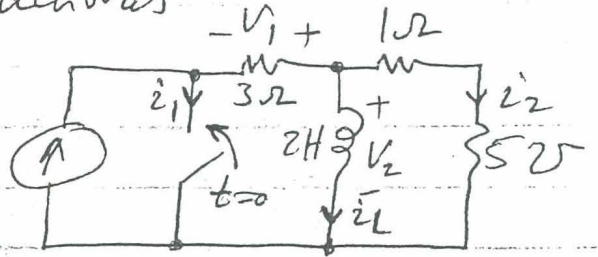 - V₁ + 1Ω
i₁ 3Ω + i₂
2H V₂ 5Ʊ
t=0 -
iL